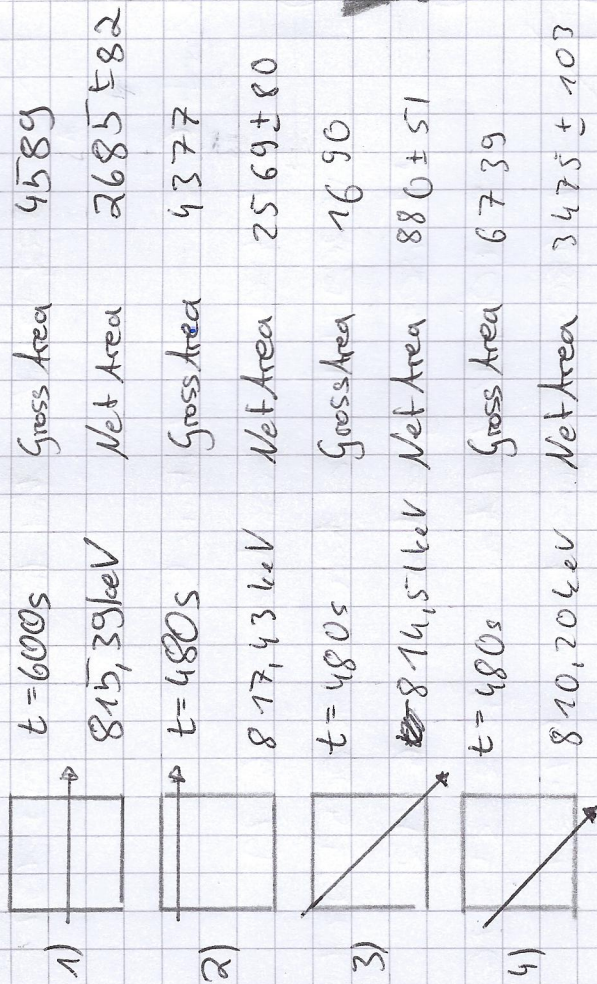 1) t=600s Gross Area 4589
815,39 keV Net Area 2685 ± 82
2) t=480s Gross Area 4377
817,43 keV Net Area 2569 ± 80
3) t=480s Gross Area 1690
814,51 keV Net Area 880 ± 51
4) t=480s Gross Area 6739
810,20 keV Net Area 3475 ± 103